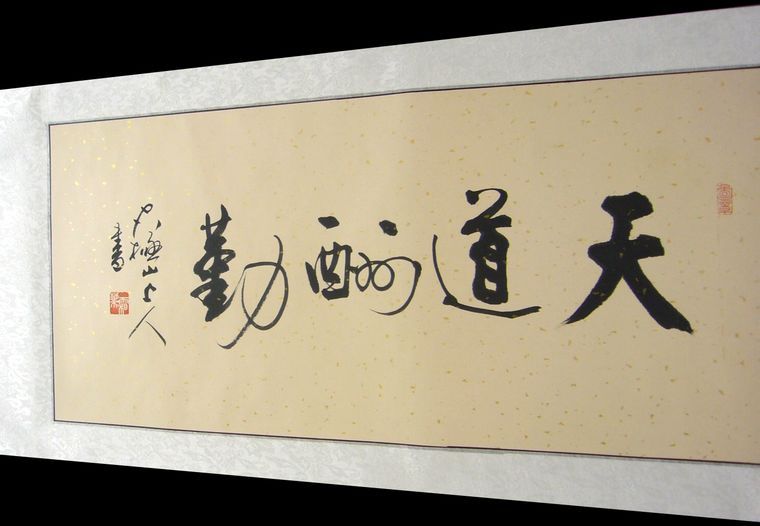 天道酬勤
極山上人
書